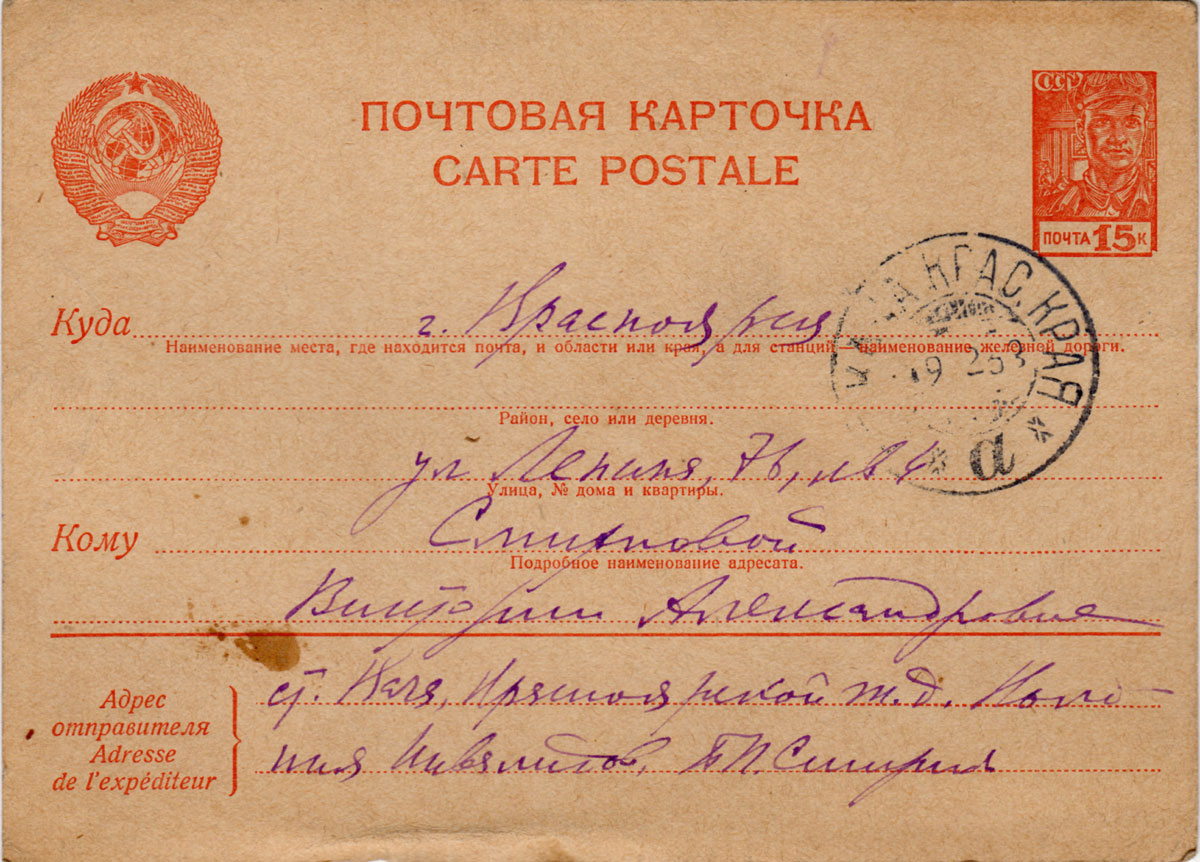 ПОЧТОВАЯ КАРТОЧКА
CARTE POSTALE
СССР
ПОЧТА 15 К
КРАС. КРАЯ
19 2 53
а
Куда г. Красноярск
Наименование места, где находится почта, и области или края, а для станций—наименование железной дороги.
Район, село или деревня.
ул Ленина, 76,
Улица, № дома и квартиры.
Кому Смирновой
Подробное наименование адресата.
Виктории Александровне
Адрес отправителя
Adresse de l'expéditeur
ст. Кача, Красноярской ж.д. Коло-
ния Инвалидов,